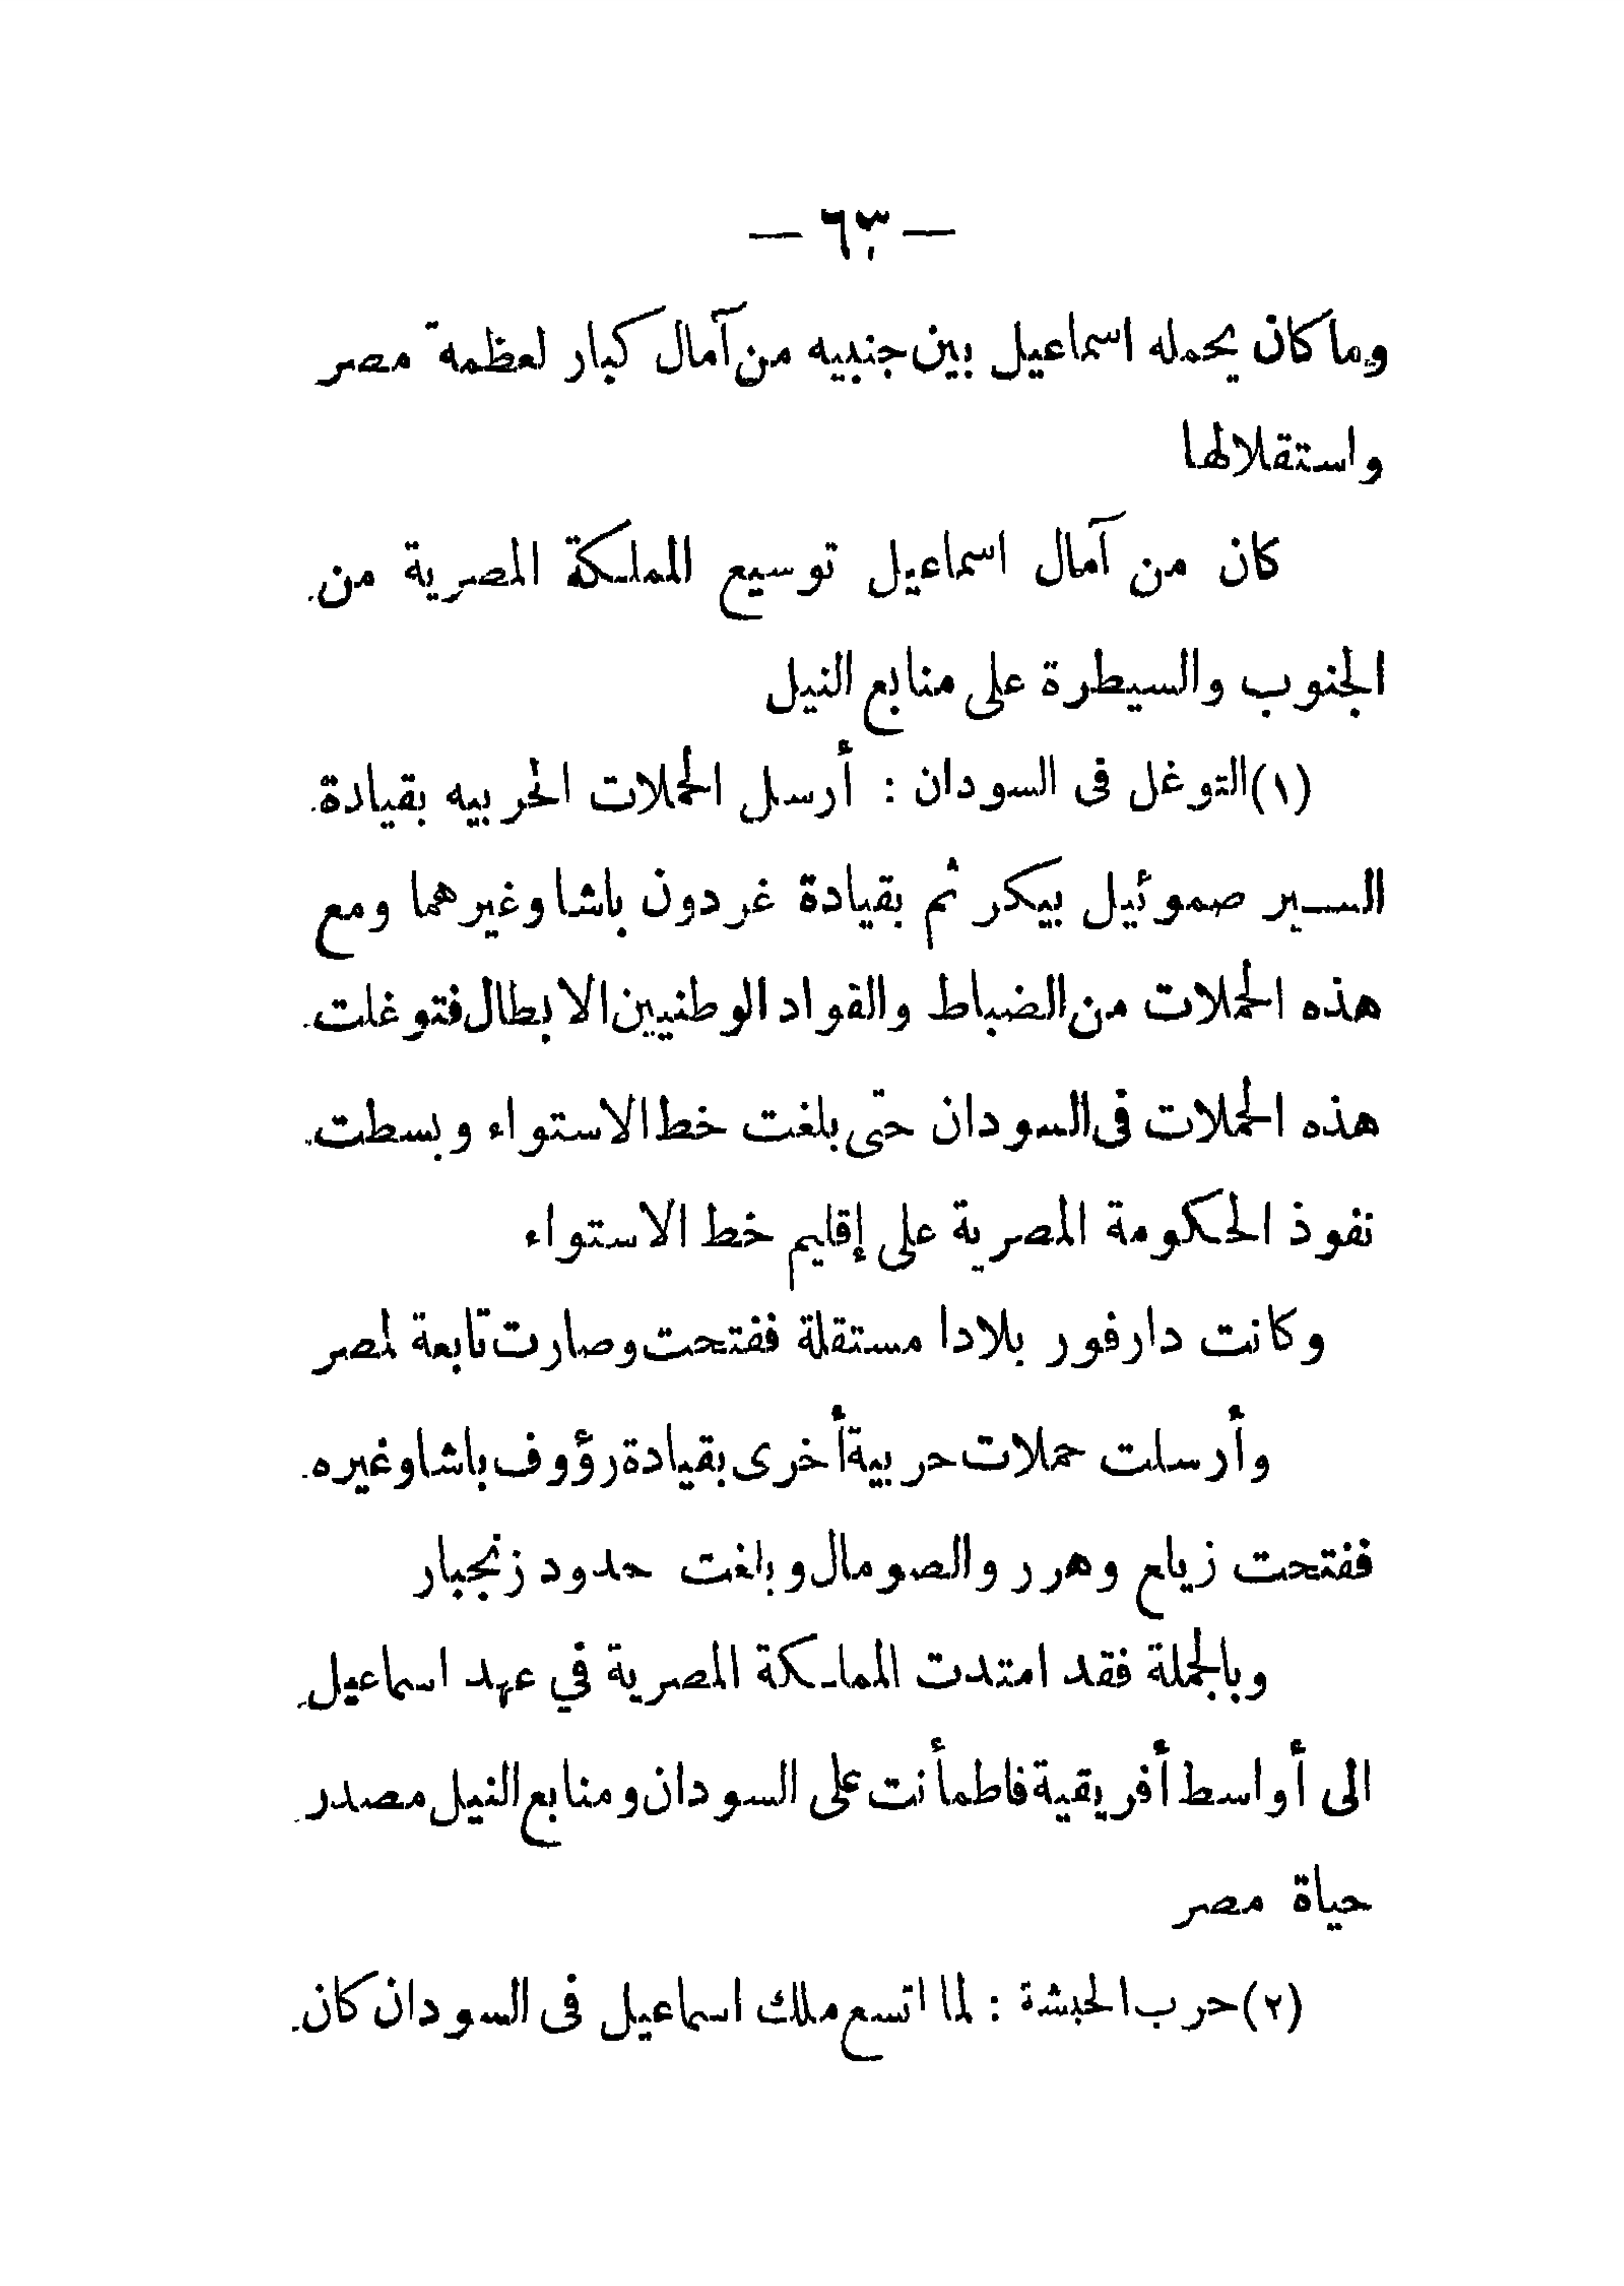 — ٦٣ —
وما كان يحمله اسماعيل بين جنبيه من آمال كبار لعظمة مصر
واستقلالها
كان من آمال اسماعيل توسيع المملكة المصرية من
الجنوب والسيطرة على منابع النيل
(١) التوغل فى السودان : أرسل الحملات الحربيه بقيادة
السير صموئيل بيكر ثم بقيادة غردون باشا وغيرهما ومع
هذه الحملات من الضباط والقواد الوطنيين الابطال فتوغلت
هذه الحملات فى السودان حتى بلغت خط الاستواء وبسطت
نفوذ الحكومة المصرية على إقليم خط الاستواء
وكانت دارفور بلادا مستقلة ففتحت وصارت تابعة لمصر
وأرسلت حملات حربية أخرى بقيادة رؤوف باشا وغيره
ففتحت زيلع وهرر والصومال وبلغت حدود زنجبار
وبالجملة فقد امتدت المملكة المصرية في عهد اسماعيل
الى أواسط أفريقية فاطمأنت على السودان ومنابع النيل مصدر
حياة مصر
(٢) حرب الحبشة : لما اتسع ملك اسماعيل فى السودان كان